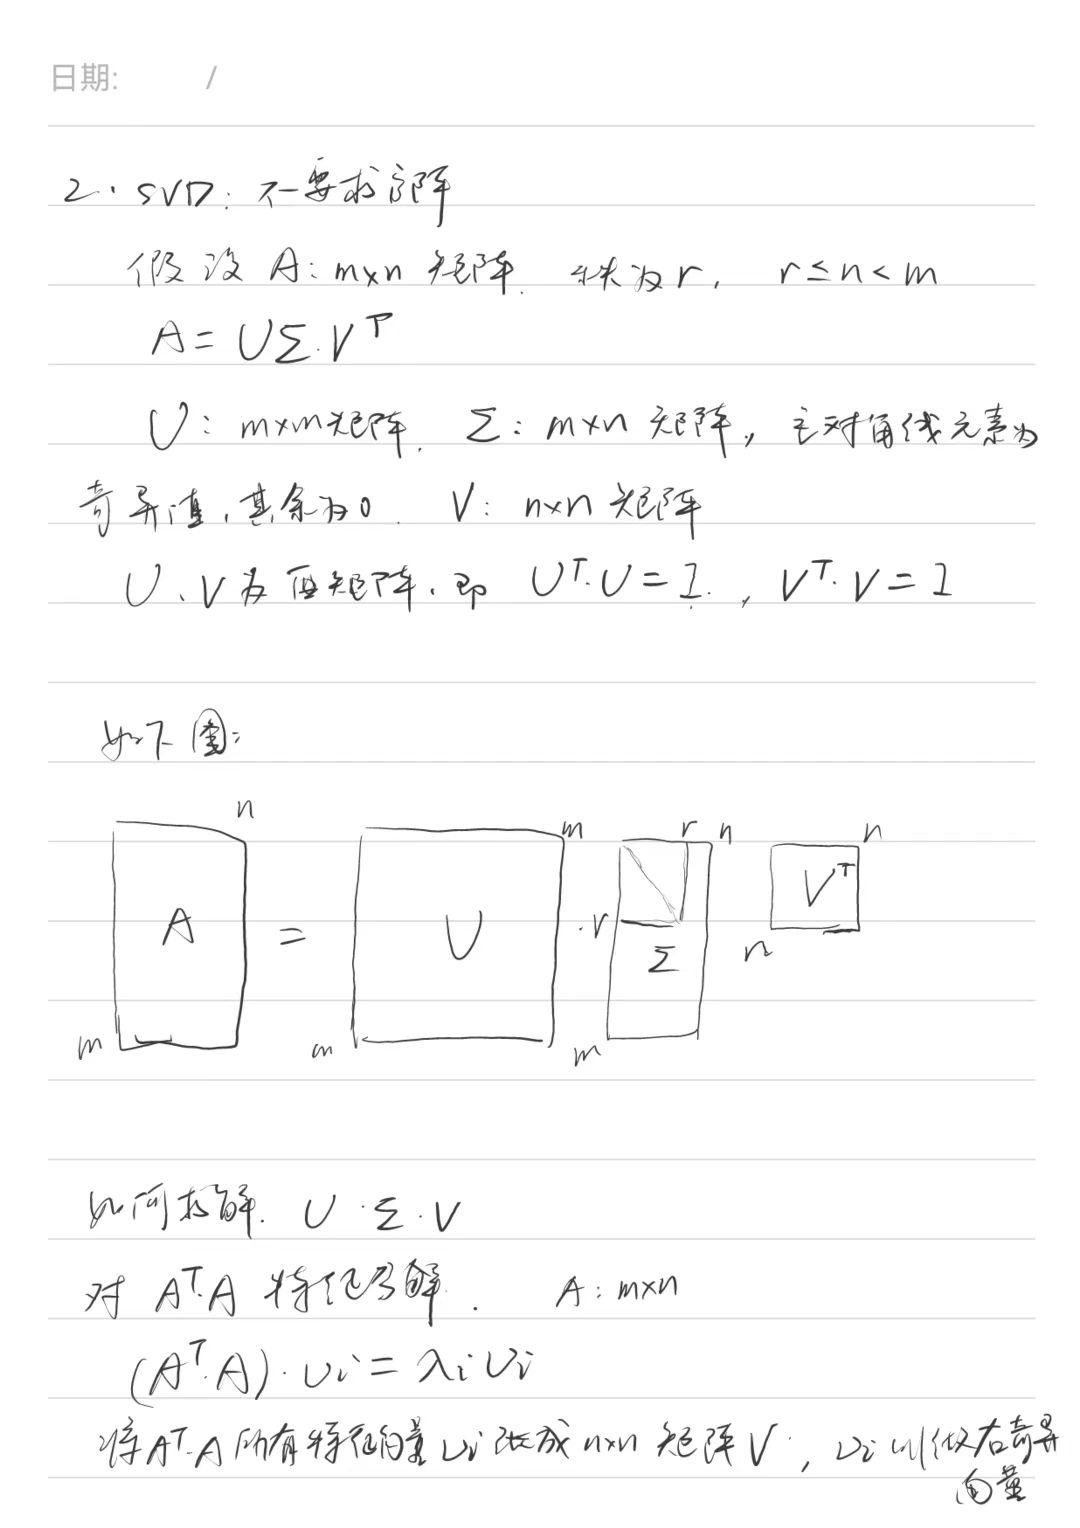 日期: /
2. SVD: 不要求方阵
假设 A: m×n 矩阵. 秩为 r, r≤n<m
A = UΣ·Vᵀ
U: m×m矩阵. Σ: m×n 矩阵, 主对角线元素为
奇异值, 其余为0. V: n×n 矩阵
U、V为酉矩阵, 即 Uᵀ·U = I., Vᵀ·V = I
如下图:
n m r n n
A = U · r Σ Vᵀ
m m m n
如何求解. U·Σ·V
对 Aᵀ·A 特征分解. A: m×n
(Aᵀ·A)·υi = λi υi
将 Aᵀ·A 所有特征向量 υi 张成 n×n 矩阵 V, υi 叫做右奇异
向量